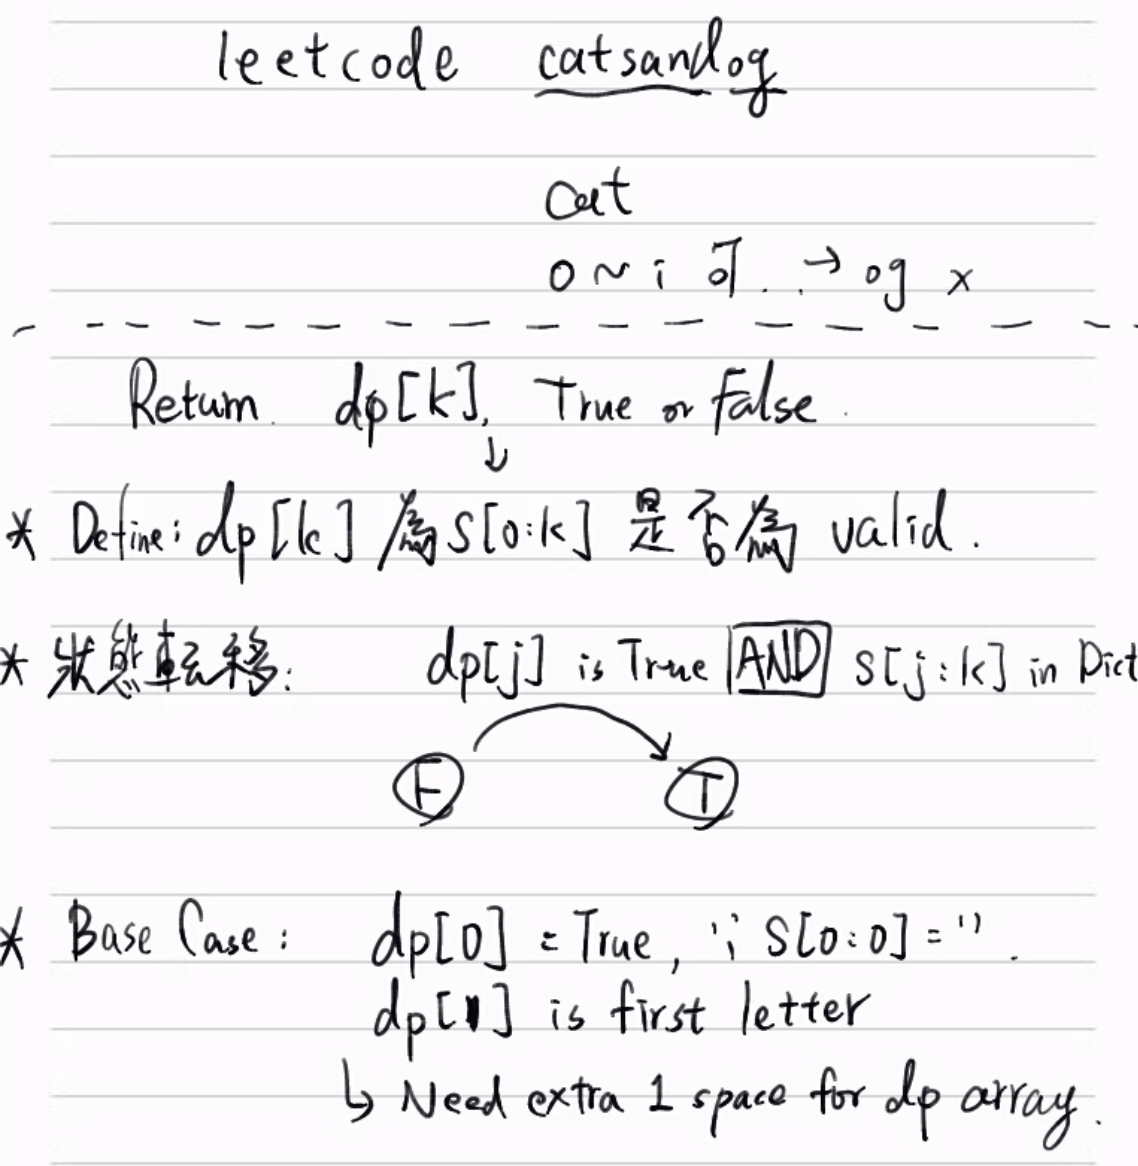 leetcode catsandog
cat
0 ~ i 可 . . → og x
Return dp[k], True or False.
↓
* Define: dp[k] 為 S[0:k] 是否為 valid.
* 狀態転移: dp[j] is True AND S[j:k] in Dict
F T
* Base Case: dp[0] = True, ∵ S[0:0] = ''.
dp[1] is first letter
↳ Need extra 1 space for dp array.